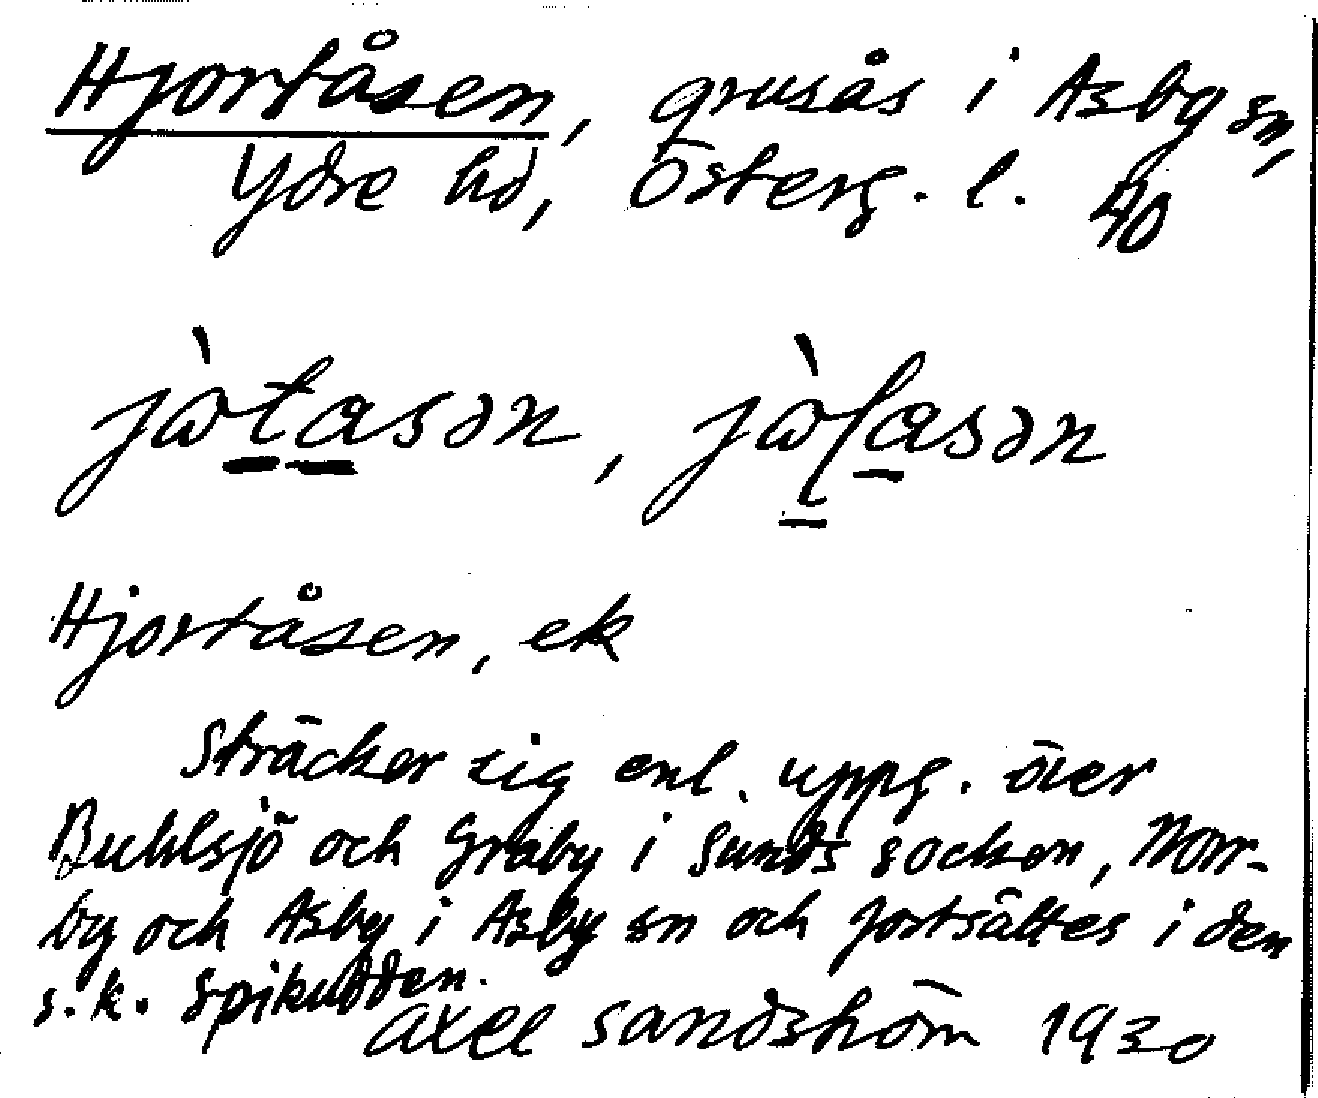 Hjortåsen, grusås i Asby sn,
Ydre hd, Österg. l. 40
jòtasən, jòʃasən
Hjortåsen, ek
Sträcker sig enl. uppg. över
Buhlsjö och Graby i Sunds socken, Norr-
by och Asby i Asby sn och fortsättes i den
s.k. Spikudden.
Axel Sandström 1930